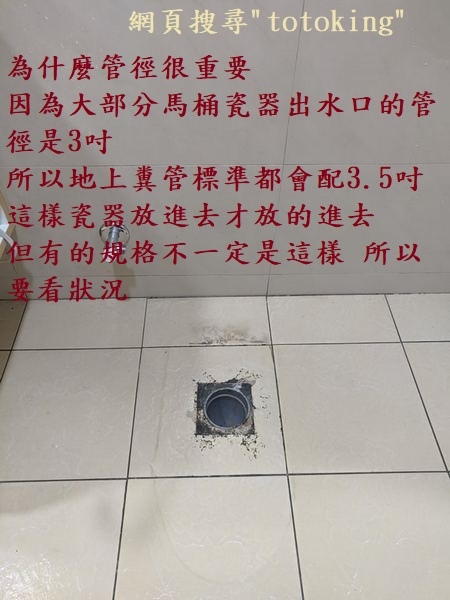 網頁搜尋"totoking"
為什麼管徑很重要
因為大部分馬桶瓷器出水口的管
徑是3吋
所以地上糞管標準都會配3.5吋
這樣瓷器放進去才放的進去
但有的規格不一定是這樣 所以
要看狀況